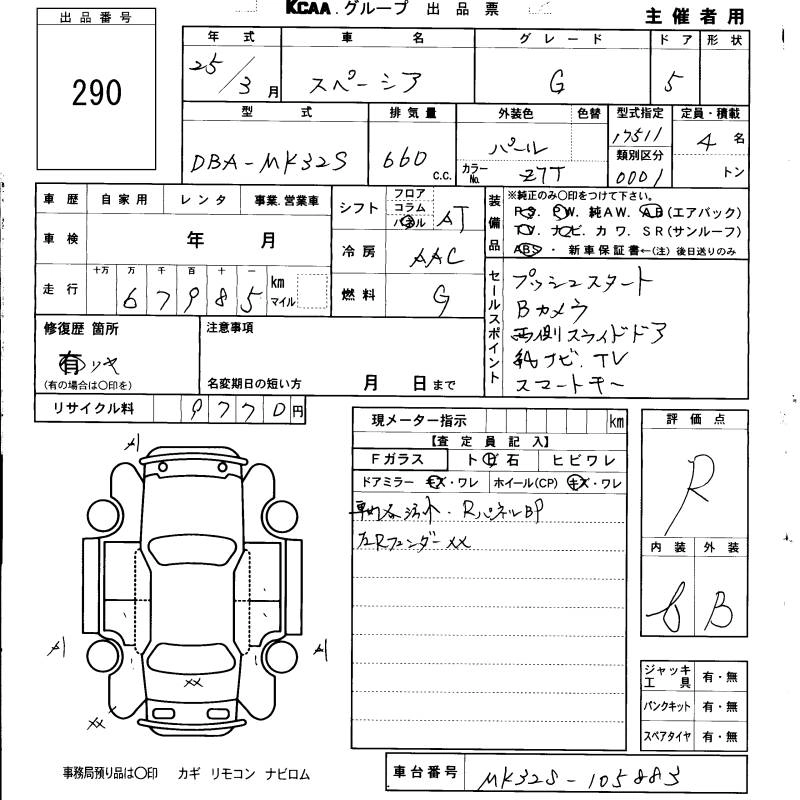 KCAA.グループ 出品票
主催者用
出品番号
290
年式 車名 グレード ドア 形状
25/3月 スペーシア G 5
型式 排気量 外装色 色替 型式指定 定員・積載
DBA-MK32S 660 c.c. パール カラーNo. Z7T 17511 4名
類別区分
0001 トン
車歴 自家用 レンタ 事業.営業車
シフト フロア コラム パネル AT
装備品 ※純正のみ○印をつけて下さい。
PS. PW. 純AW. AB(エアバック)
TV. ナビ. カワ. SR(サンルーフ)
ABS・新車保証書←(注)後日送りのみ
車検 年 月
冷房 AAC
走行 十万 万 千 百 十 一
67985 km マイル
燃料 G
セールスポイント
プッシュスタート
Bカメラ
両側スライドドア
純ナビ.TV
スマートキー
修復歴 箇所
有
(有の場合は○印を)
注意事項
名変期日の短い方 月 日まで
リサイクル料 9770円
現メーター指示 km
【査定員記入】
Fガラス ト ビ 石 ヒビワレ
ドアミラー キズ・ワレ ホイール(CP) キズ・ワレ
RパネルBP
左Rフェンダーxx
評価点
R
内装 外装
B
A1
A1
A1
xx
xx
ジャッキ 工具 有・無
パンクキット 有・無
スペアタイヤ 有・無
事務局預り品は○印 カギ リモコン ナビロム
車台番号 MK32S-105883